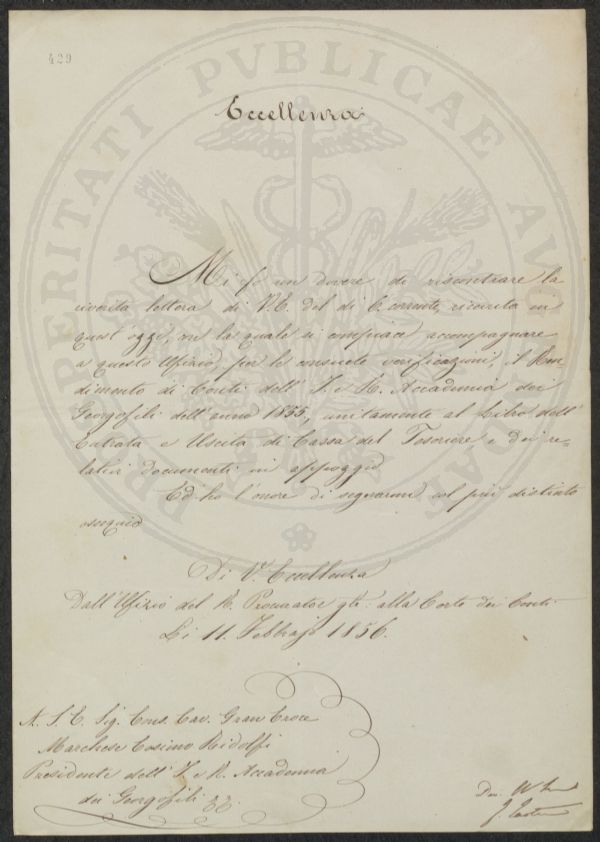 429
PROSPERITATI PVBLICAE AVGENDAE
Eccellenza
Mi fo un dovere di riscontrare la
riverita lettera di V.E. del dì 6. corrente, ricevuta in
quest'oggi, con la quale si compiace accompagnare
a questo Ufizio per le consuete verificazioni, il Ren
dimento di Conti dell' I. e R. Accademia dei
Georgofili dell'anno 1855, unitamente al Libro dell'
Entrata e Uscita di Cassa del Tesoriere, e dei re-
lativi documenti in appoggio
Ed ho l'onore di segnarmi col più distinto
ossequio
Di V. Eccellenza
Dall'Ufizio del R. Procurator gle: alla Corte dei Conti
Li 11. Febbrajo 1856.
A. S. E. Sig. Cons. Cav. Gran Croce
Marchese Cosimo Ridolfi
Presidente dell' I. e R. Accademia
dei Georgofili